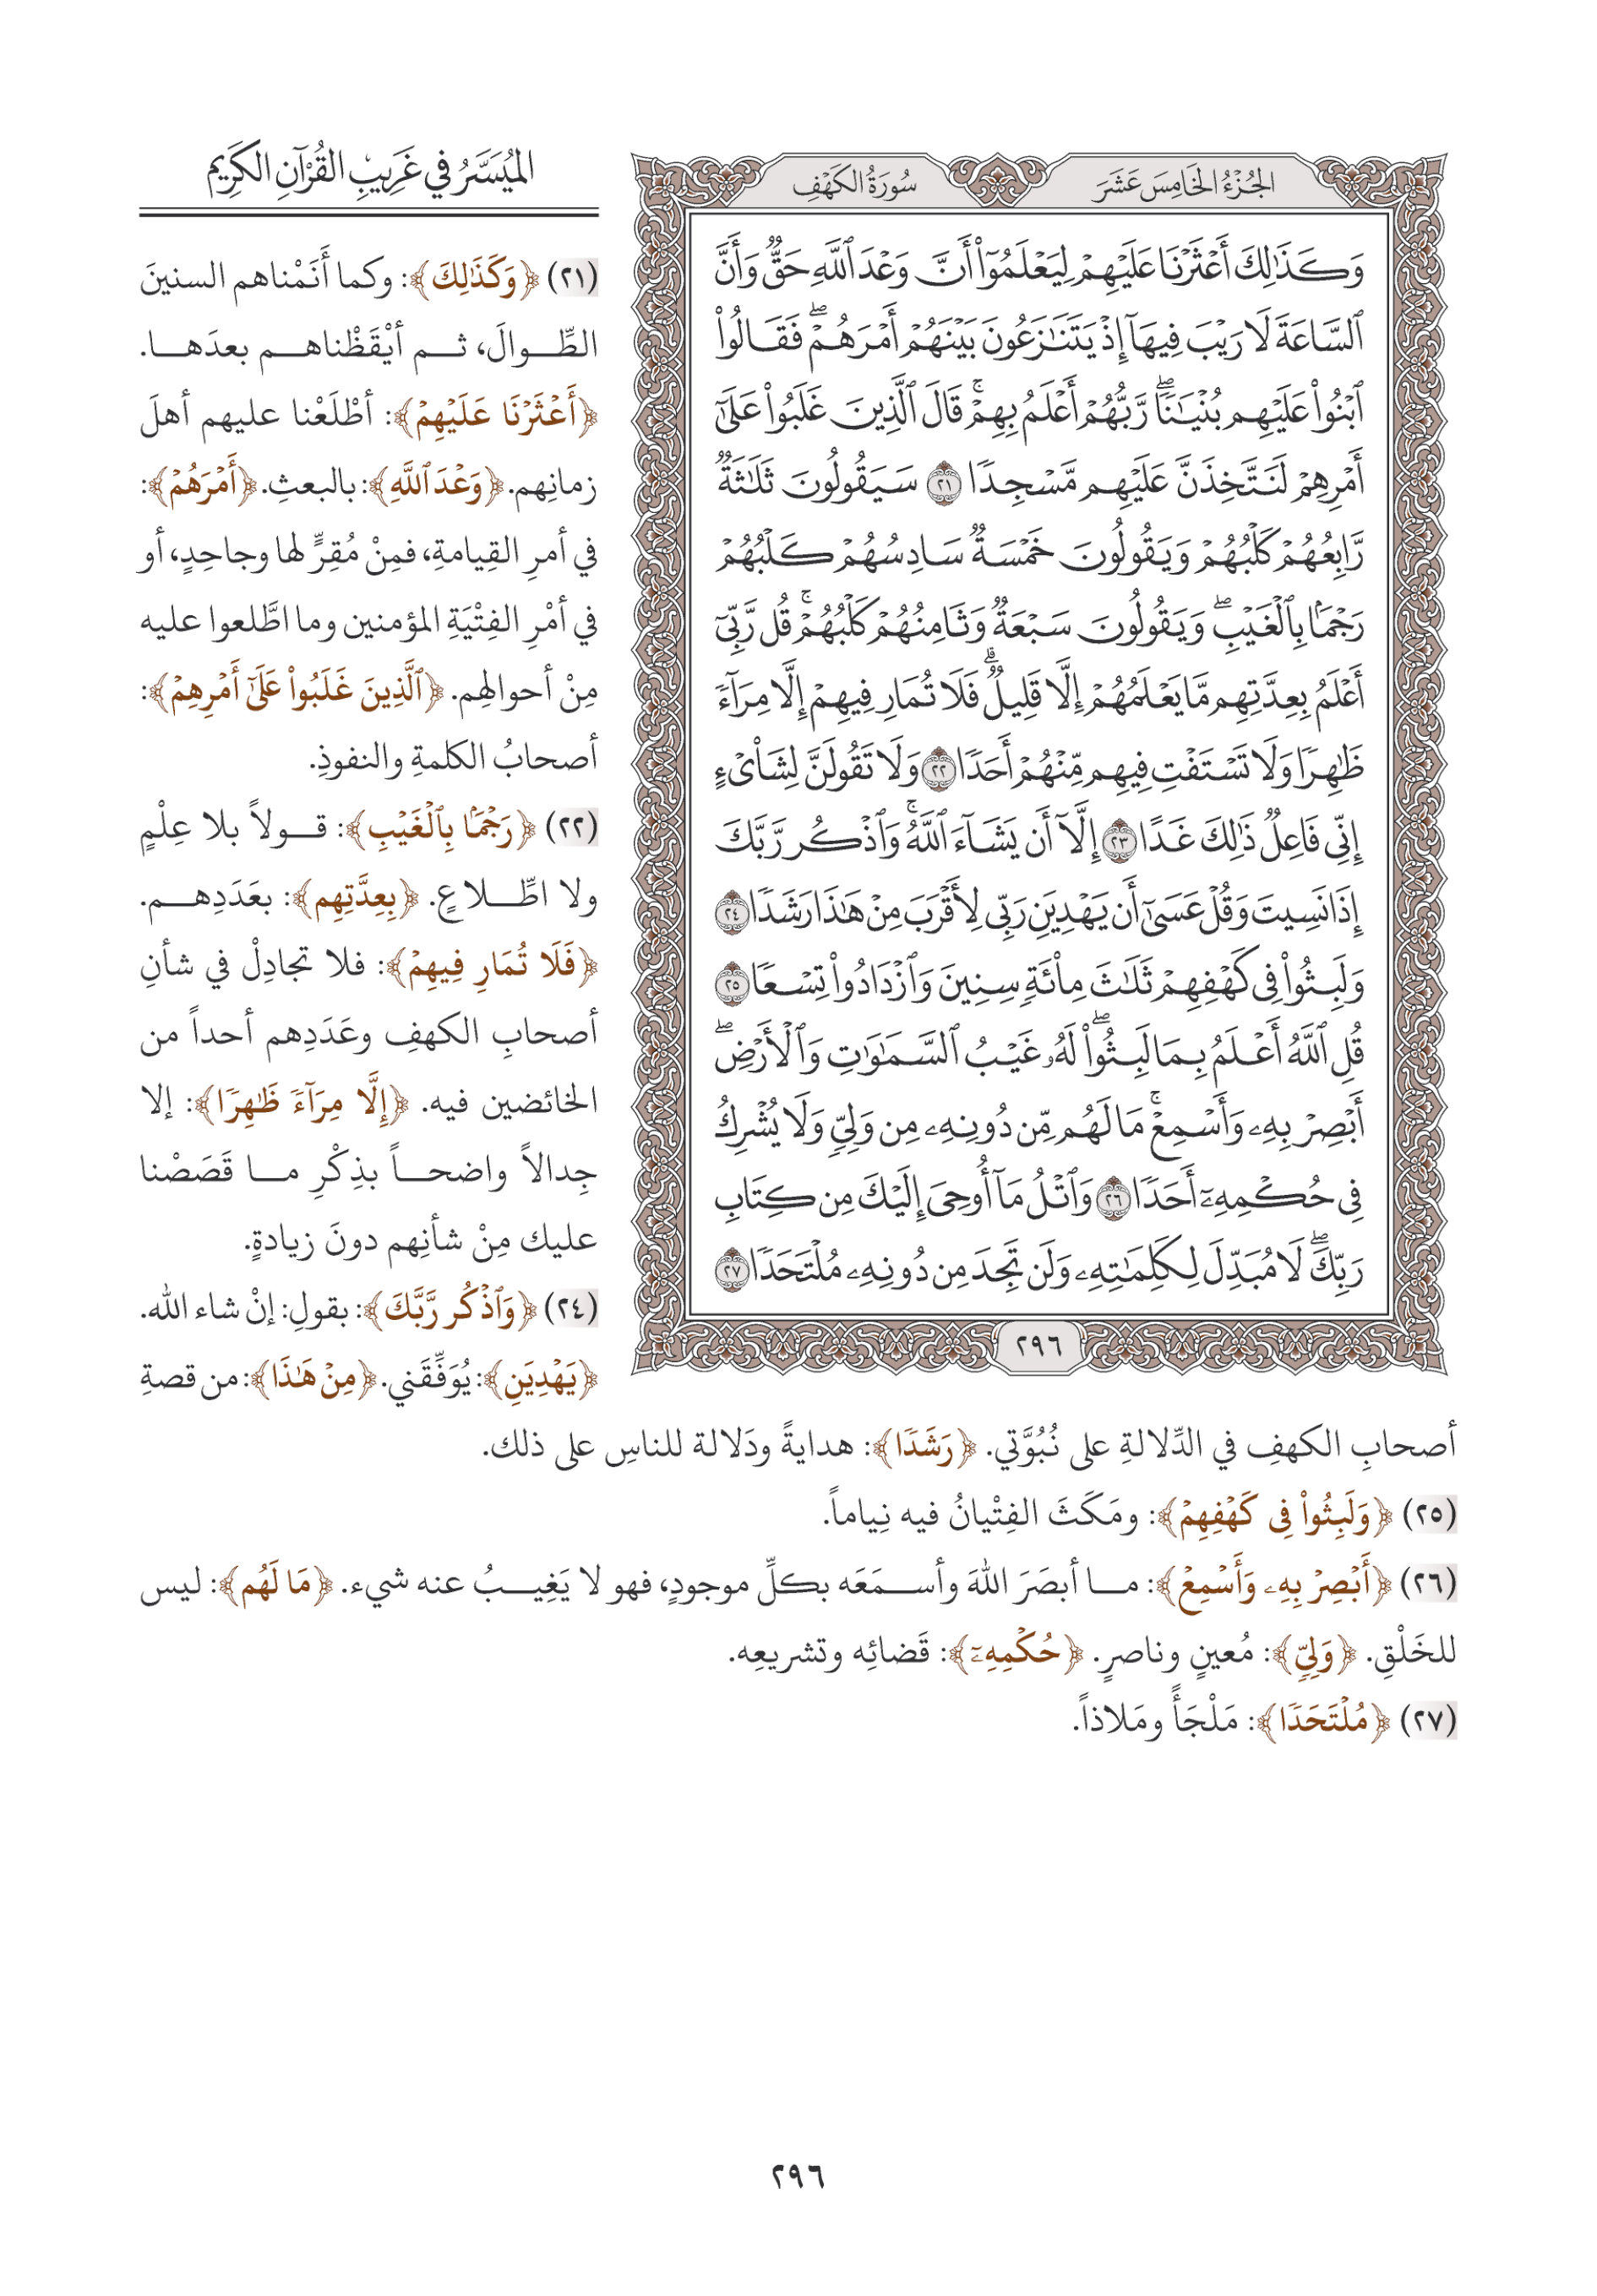 الجُزْءُ الخَامِسَ عَشَرَ
سُورَةُ الكَهْفِ
وَكَذَٰلِكَ أَعْثَرْنَا عَلَيْهِمْ لِيَعْلَمُوٓا۟ أَنَّ وَعْدَ ٱللَّهِ حَقٌّ وَأَنَّ
ٱلسَّاعَةَ لَا رَيْبَ فِيهَآ إِذْ يَتَنَٰزَعُونَ بَيْنَهُمْ أَمْرَهُمْ ۖ فَقَالُوا۟
ٱبْنُوا۟ عَلَيْهِم بُنْيَٰنًا ۖ رَّبُّهُمْ أَعْلَمُ بِهِمْ ۚ قَالَ ٱلَّذِينَ غَلَبُوا۟ عَلَىٰٓ
أَمْرِهِمْ لَنَتَّخِذَنَّ عَلَيْهِم مَّسْجِدًا ٢١ سَيَقُولُونَ ثَلَٰثَةٌ
رَّابِعُهُمْ كَلْبُهُمْ وَيَقُولُونَ خَمْسَةٌ سَادِسُهُمْ كَلْبُهُمْ
رَجْمًۢا بِٱلْغَيْبِ ۖ وَيَقُولُونَ سَبْعَةٌ وَثَامِنُهُمْ كَلْبُهُمْ ۚ قُل رَّبِّىٓ
أَعْلَمُ بِعِدَّتِهِم مَّا يَعْلَمُهُمْ إِلَّا قَلِيلٌ ۗ فَلَا تُمَارِ فِيهِمْ إِلَّا مِرَآءً
ظَٰهِرًا وَلَا تَسْتَفْتِ فِيهِم مِّنْهُمْ أَحَدًا ٢٢ وَلَا تَقُولَنَّ لِشَا۟ىْءٍ
إِنِّى فَاعِلٌ ذَٰلِكَ غَدًا ٢٣ إِلَّآ أَن يَشَآءَ ٱللَّهُ ۚ وَٱذْكُر رَّبَّكَ
إِذَا نَسِيتَ وَقُلْ عَسَىٰٓ أَن يَهْدِيَنِ رَبِّى لِأَقْرَبَ مِنْ هَٰذَا رَشَدًا ٢٤
وَلَبِثُوا۟ فِى كَهْفِهِمْ ثَلَٰثَ مِا۟ئَةٍ سِنِينَ وَٱزْدَادُوا۟ تِسْعًا ٢٥
قُلِ ٱللَّهُ أَعْلَمُ بِمَا لَبِثُوا۟ ۖ لَهُۥ غَيْبُ ٱلسَّمَٰوَٰتِ وَٱلْأَرْضِ ۖ
أَبْصِرْ بِهِۦ وَأَسْمِعْ ۚ مَا لَهُم مِّن دُونِهِۦ مِن وَلِىٍّ وَلَا يُشْرِكُ
فِى حُكْمِهِۦٓ أَحَدًا ٢٦ وَٱتْلُ مَآ أُوحِىَ إِلَيْكَ مِن كِتَابِ
رَبِّكَ ۖ لَا مُبَدِّلَ لِكَلِمَٰتِهِۦ وَلَن تَجِدَ مِن دُونِهِۦ مُلْتَحَدًا ٢٧
٢٩٦
المُيَسَّرُ في غَرِيبِ القُرْآنِ الكَرِيم
(٢١) ﴿وَكَذَٰلِكَ﴾: وكما أَنَمْناهم السنينَ
الطِّوالَ، ثم أيْقَظْناهم بعدَها.
﴿أَعْثَرْنَا عَلَيْهِمْ﴾: أطْلَعْنا عليهم أهلَ
زمانِهم. ﴿وَعْدَ ٱللَّهِ﴾: بالبعثِ. ﴿أَمْرَهُمْ﴾:
في أمرِ القِيامةِ، فمِنْ مُقِرٍّ لها وجاحِدٍ، أو
في أمْرِ الفِتْيَةِ المؤمنين وما اطَّلعوا عليه
مِنْ أحوالِهم. ﴿ٱلَّذِينَ غَلَبُوا۟ عَلَىٰٓ أَمْرِهِمْ﴾:
أصحابُ الكلمةِ والنفوذِ.
(٢٢) ﴿رَجْمًۢا بِٱلْغَيْبِ﴾: قولاً بلا عِلْمٍ
ولا اطِّلاعٍ. ﴿بِعِدَّتِهِم﴾: بعَدَدِهم.
﴿فَلَا تُمَارِ فِيهِمْ﴾: فلا تجادِلْ في شأنِ
أصحابِ الكهفِ وعَدَدِهم أحداً من
الخائضين فيه. ﴿إِلَّا مِرَآءً ظَٰهِرًا﴾: إلا
جِدالاً واضحاً بذِكْرِ ما قَصَصْنا
عليك مِنْ شأنِهم دونَ زيادةٍ.
(٢٤) ﴿وَٱذْكُر رَّبَّكَ﴾: بقولِ: إنْ شاء الله.
﴿يَهْدِيَنِ﴾: يُوَفِّقَني. ﴿مِنْ هَٰذَا﴾: من قصةِ
أصحابِ الكهفِ في الدِّلالةِ على نُبُوَّتي. ﴿رَشَدًا﴾: هدايةً ودَلالة للناسِ على ذلك.
(٢٥) ﴿وَلَبِثُوا۟ فِى كَهْفِهِمْ﴾: ومَكَثَ الفِتْيانُ فيه نِياماً.
(٢٦) ﴿أَبْصِرْ بِهِۦ وَأَسْمِعْ﴾: ما أبصَرَ اللهَ وأسمَعَه بكلِّ موجودٍ، فهو لا يَغِيبُ عنه شيء. ﴿مَا لَهُم﴾: ليس
للخَلْقِ. ﴿وَلِىٍّ﴾: مُعينٍ وناصرٍ. ﴿حُكْمِهِۦٓ﴾: قَضائِه وتشريعِه.
(٢٧) ﴿مُلْتَحَدًا﴾: مَلْجَأً ومَلاذاً.
٢٩٦